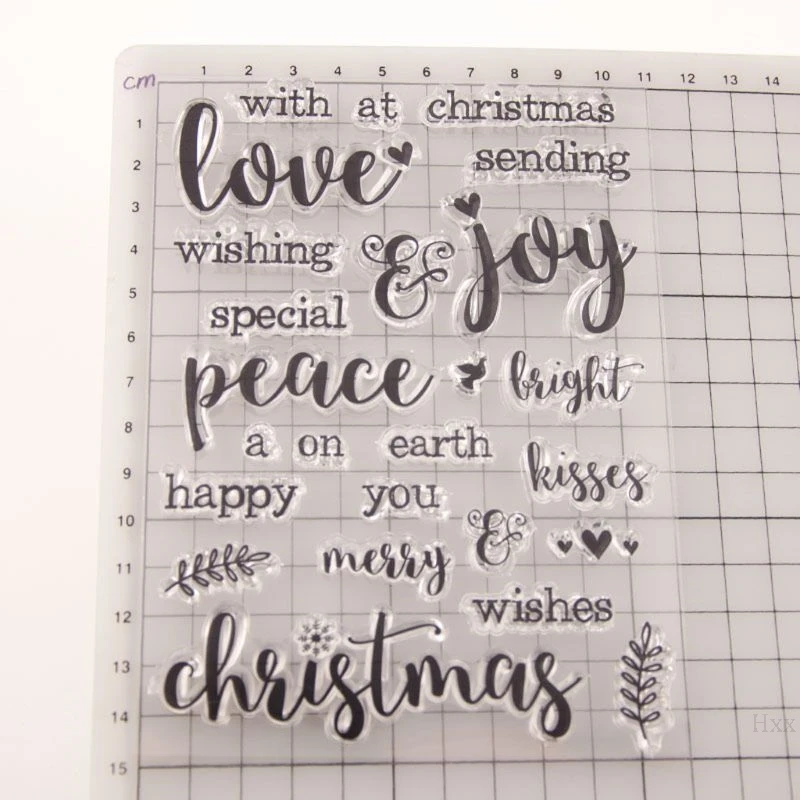 1 2 3 4 5 6 7 8 9 10 11 12 13 14
cm
with at christmas
1
love sending
2
3
wishing & joy
4
5
special
6
peace bright
7
a on earth
8
kisses
9
happy you
10
&
merry
11
wishes
12
christmas
13
14
Hxx
15